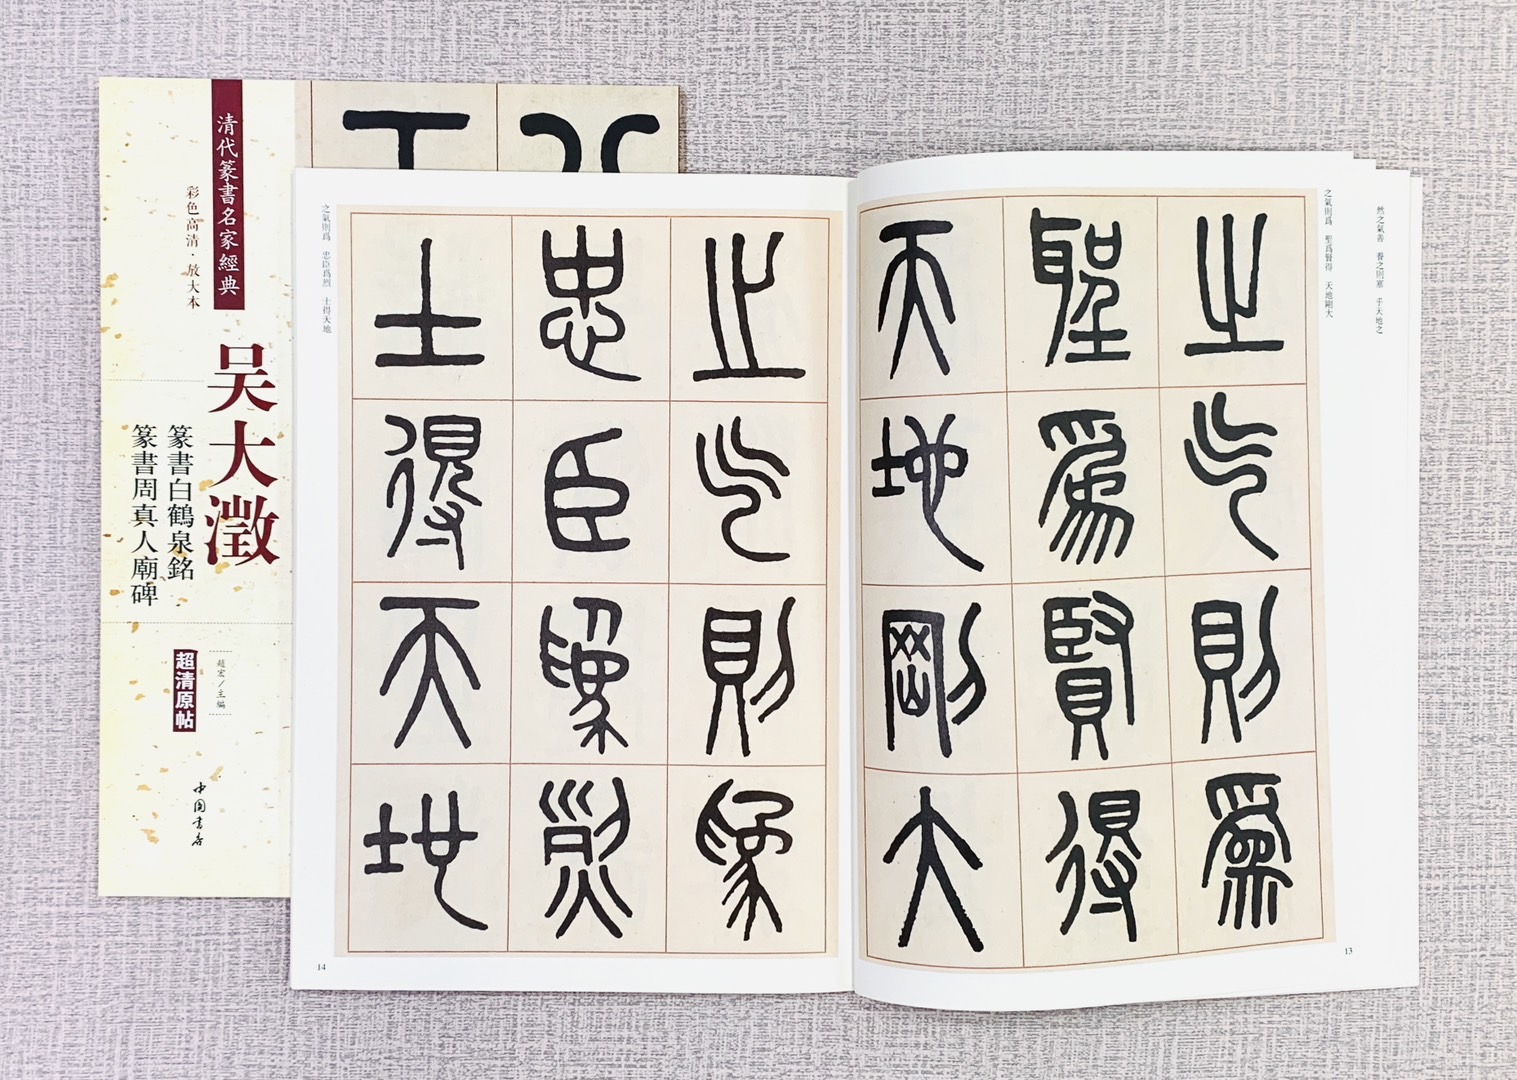 清代篆書名家經典
彩色高清·放大本
吴大澂
篆書白鶴泉銘
篆書周真人廟碑
趙宏/主編
超清原帖
中國書店
然之氣善 養之則塞 乎天地之
之氣則爲 聖爲賢得 天地剛大
之氣則爲
聖爲賢得
天地剛大
13
之氣則爲
忠臣爲烈
士得天地
之氣則爲 忠臣爲烈 士得天地
14